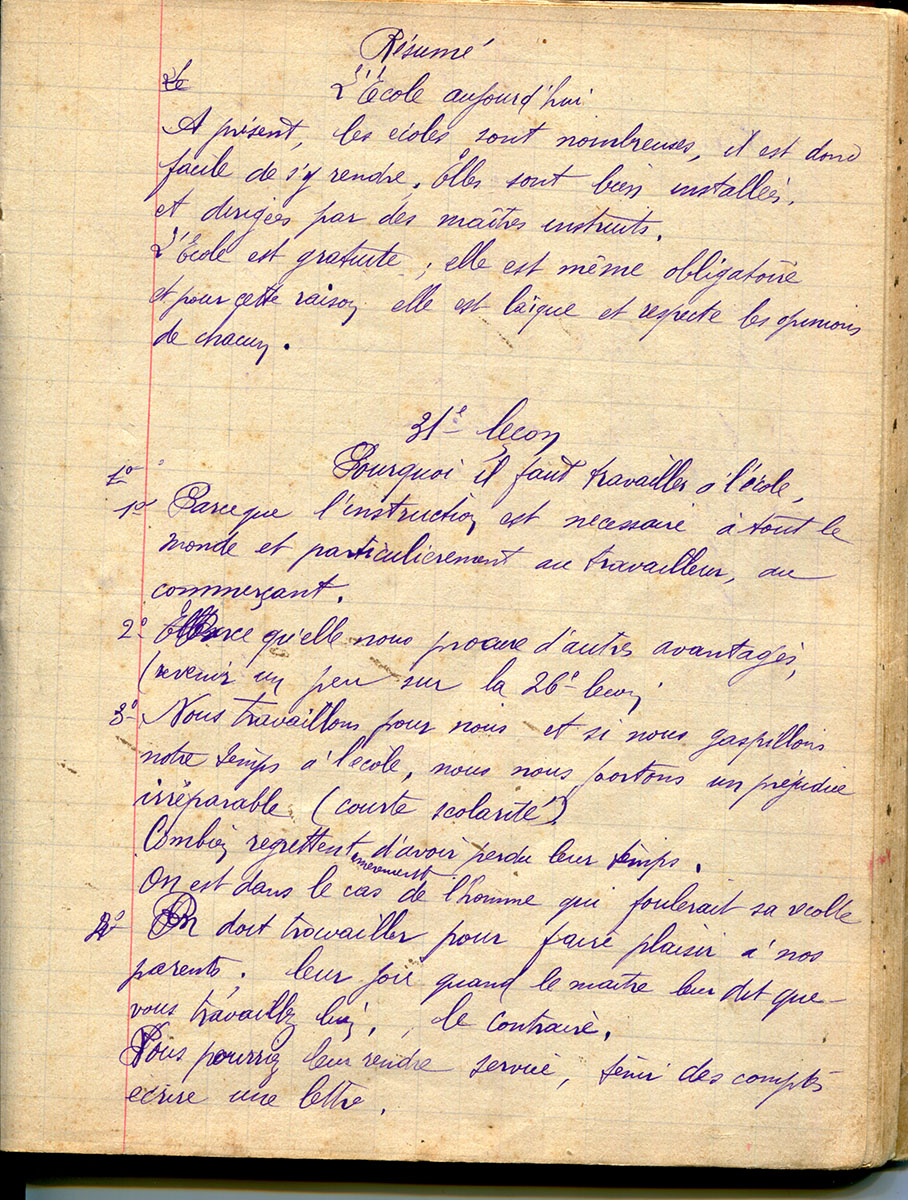 Résumé
L'École aujourd'hui
A présent, les écoles sont nombreuses, il est donc
facile de s'y rendre. Elles sont bien installées,
et dirigées par des maîtres instruits.
L'École est gratuite ; elle est même obligatoire
et pour cette raison elle est laïque et respecte les opinions
de chacun.
31e leçon
1o Pourquoi il faut travailler à l'école.
1o Parce que l'instruction est nécessaire à tout le
monde et particulièrement au travailleur, au
commerçant.
2o Parce qu'elle nous procure d'autres avantages,
(revenir un peu sur la 26e leçon
3o Nous travaillons pour nous et si nous gaspillons
notre temps à l'école, nous nous portons un préjudice
irréparable (courte scolarité)
Combien regrettent amèrement d'avoir perdu leur temps.
On est dans le cas de l'homme qui foulerait sa récolte
4o On doit travailler pour faire plaisir à nos
parents. leur joie quand le maître leur dit que
vous travaillez bien, le contraire.
Vous pourrez leur rendre service, tenir des comptes
écrire une lettre.